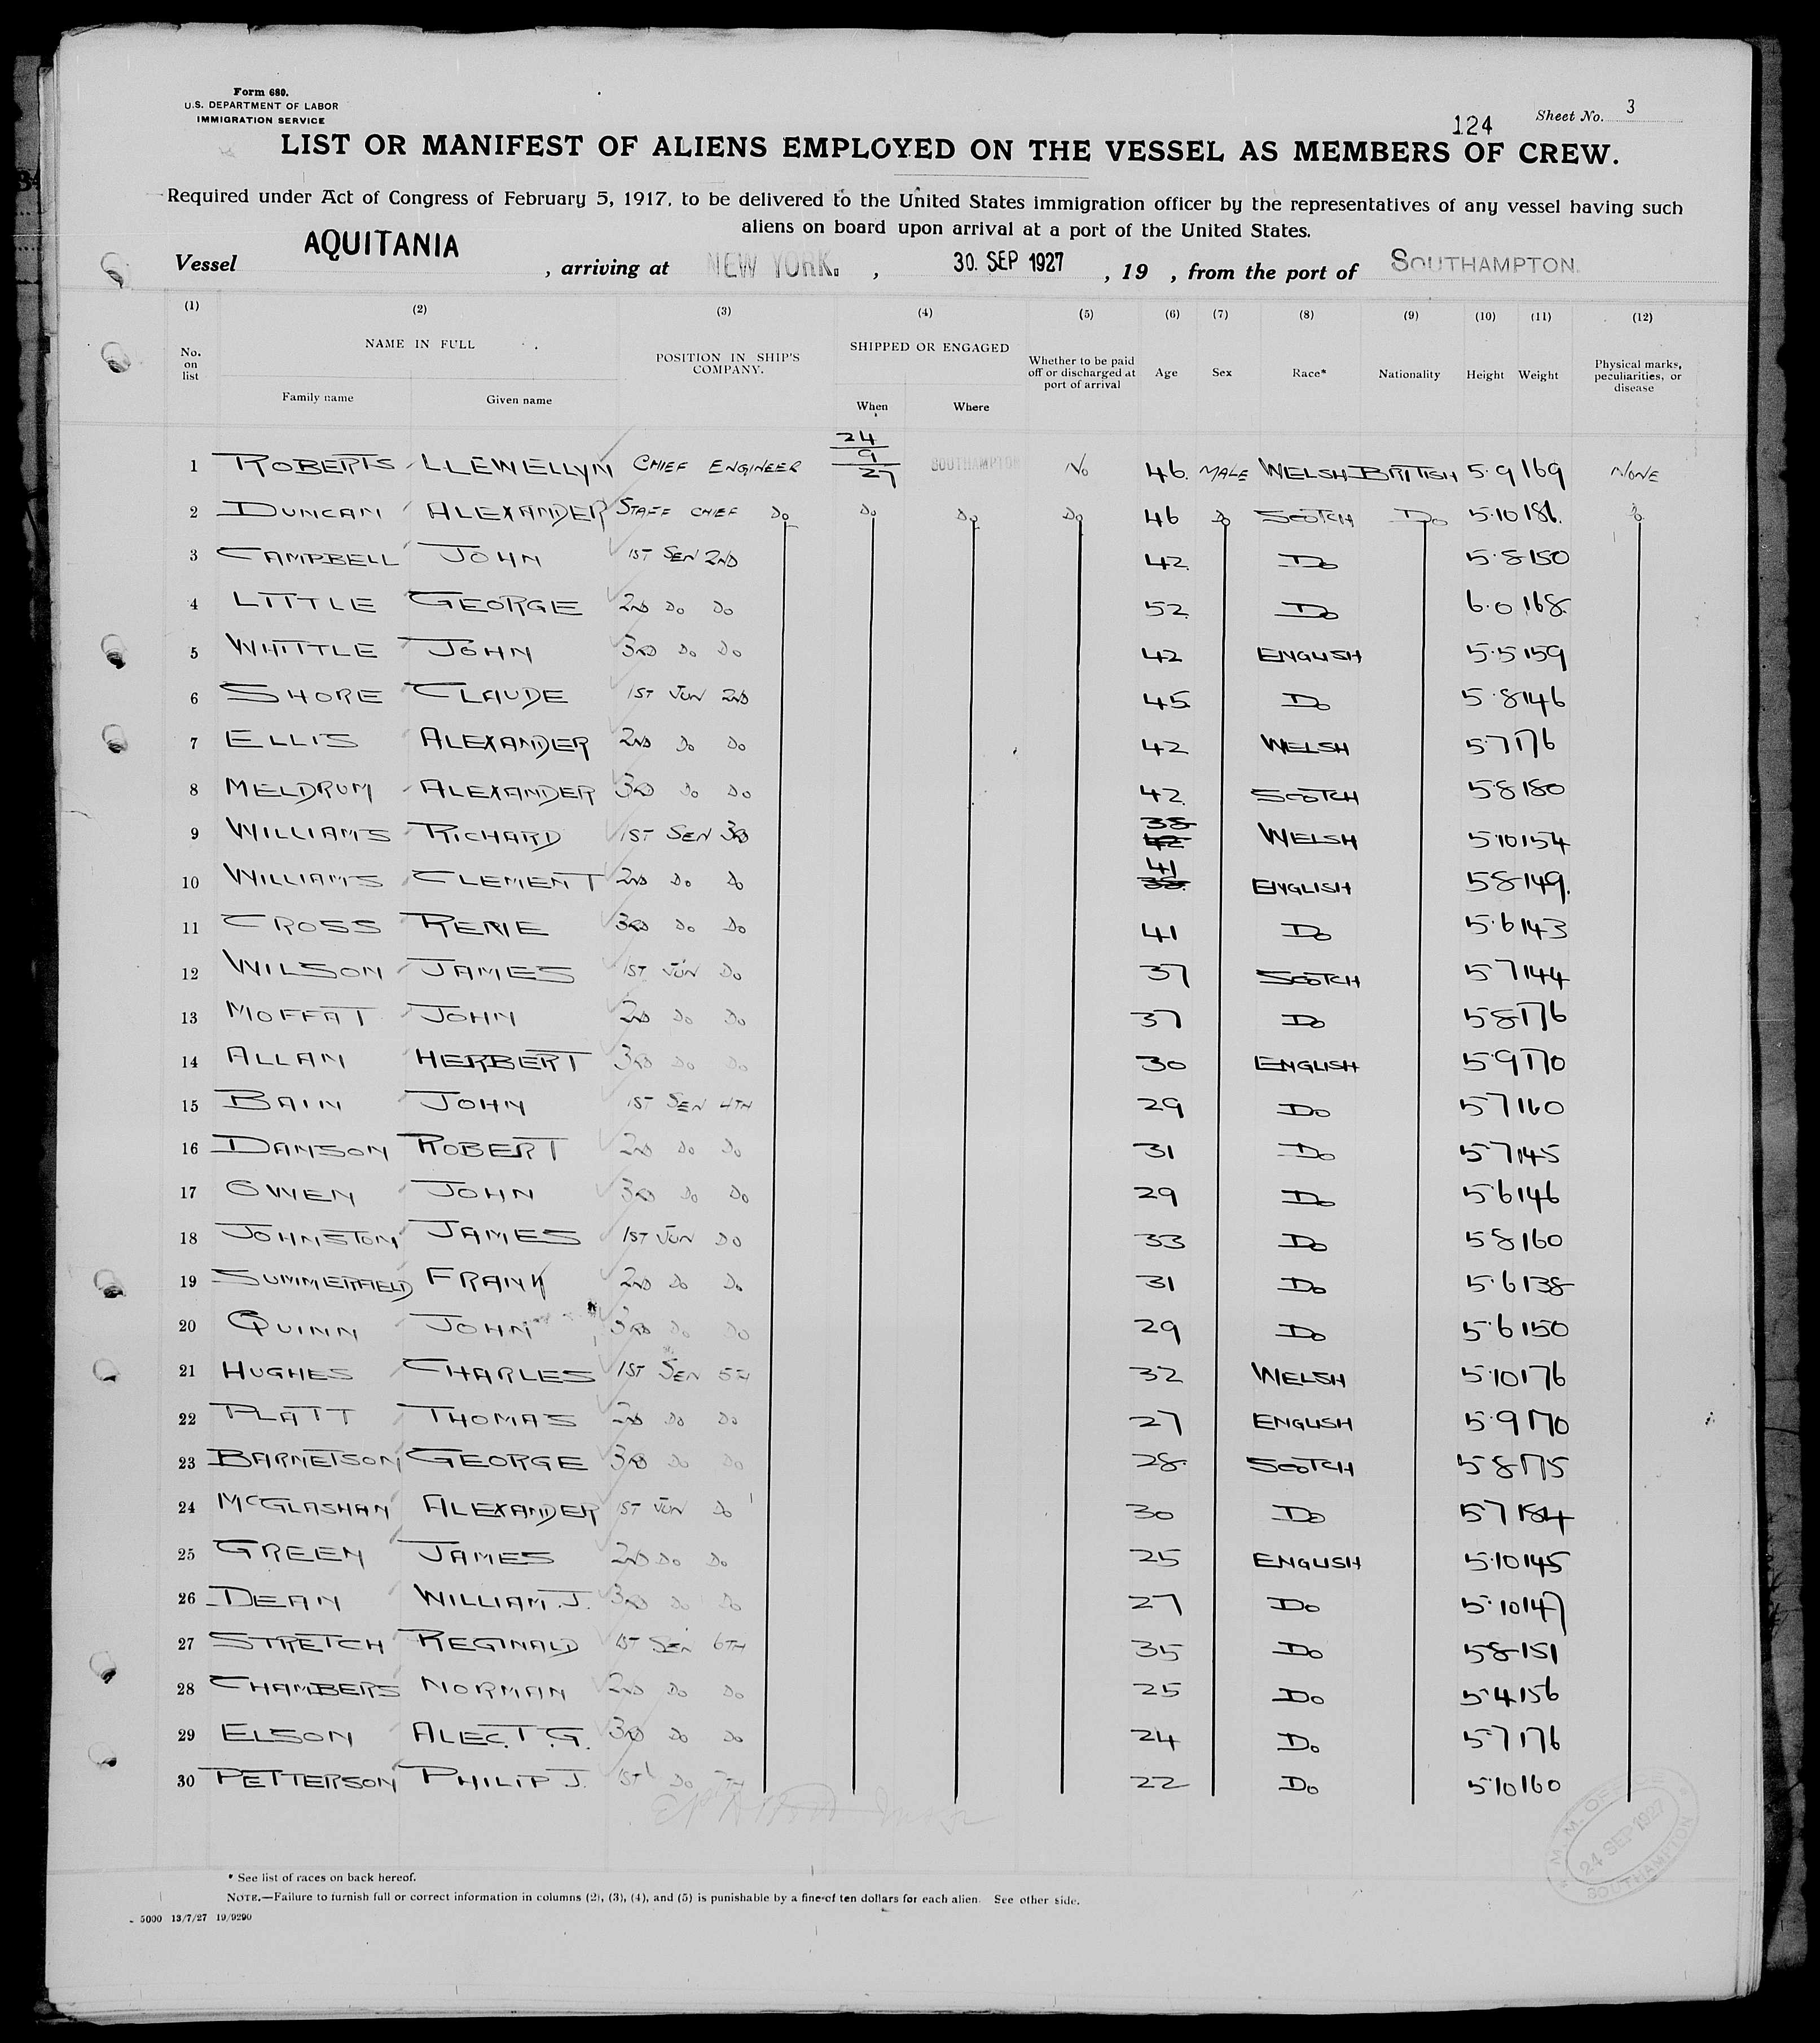 Form 680.
U.S. DEPARTMENT OF LABOR
IMMIGRATION SERVICE
Sheet No. 3
124
LIST OR MANIFEST OF ALIENS EMPLOYED ON THE VESSEL AS MEMBERS OF CREW.
Required under Act of Congress of February 5, 1917, to be delivered to the United States immigration officer by the representatives of any vessel having such
aliens on board upon arrival at a port of the United States.
Vessel AQUITANIA, arriving at NEW YORK., 30. SEP 1927, 19 , from the port of SOUTHAMPTON.
(1) (2) (3) (4) (5) (6) (7) (8) (9) (10) (11) (12)
No. on list NAME IN FULL Family name Given name POSITION IN SHIP'S COMPANY. SHIPPED OR ENGAGED When Where Whether to be paid off or discharged at port of arrival Age Sex Race* Nationality Height Weight Physical marks, peculiarities, or disease
1 ROBERTS LLEWELLYN CHIEF ENGINEER 24/9/27 SOUTHAMPTON No 46. MALE WELSH BRITISH 5.9 169 NONE
2 DUNCAN ALEXANDER STAFF CHIEF Do Do Do Do 46 Do SCOTCH Do 5.10 186. Do
3 CAMPBELL JOHN 1ST SEN 2ND 42. Do 5.8 150
4 LITTLE GEORGE 2ND Do Do 52. Do 6.0 168.
5 WHITTLE JOHN 3RD Do Do 42 ENGLISH 5.5 159
6 SHORE CLAUDE 1ST JUN 2ND 45 Do 5.8 146
7 ELLIS ALEXANDER 2ND Do Do 42 WELSH 5.7 176
8 MELDRUM ALEXANDER 3RD Do Do 42. SCOTCH 5.8 180
9 WILLIAMS RICHARD 1ST SEN 3RD 38 42 WELSH 5.10 154
10 WILLIAMS CLEMENT 2ND Do Do 41 38 ENGLISH 5.8 149.
11 CROSS RENE 3RD Do Do 41 Do 5.6 143
12 WILSON JAMES 1ST JUN Do 37 SCOTCH 5.7 144
13 MOFFAT JOHN 2ND Do Do 37 Do 5.8 176
14 ALLAN HERBERT 3RD Do Do 30 ENGLISH 5.9 170
15 BAIN JOHN 1ST SEN 4TH 29 Do 5.7 160
16 DAMSON ROBERT 2ND Do Do 31 Do 5.7 145
17 OWEN JOHN 3RD Do Do 29 Do 5.6 146
18 JOHNSTON JAMES 1ST JUN Do 33 Do 5.8 160
19 SUMMERFIELD FRANK 2ND Do Do 31 Do 5.6 138
20 QUINN JOHN 3RD Do Do 29 Do 5.6 150
21 HUGHES CHARLES 1ST SEN 5TH 32 WELSH 5.10 176
22 PLATT THOMAS 2ND Do Do 27 ENGLISH 5.9 170
23 BARNETSON GEORGE 3RD Do Do 28. SCOTCH 5.8 175
24 McGLASHAN ALEXANDER 1ST JUN Do 30 Do 5.7 184
25 GREEN JAMES 2ND Do Do 25 ENGLISH 5.10 145
26 DEAN WILLIAM.J. 3RD Do Do 27 Do 5.10 147
27 STRETCH REGINALD 1ST SEN 6TH 35 Do 5.8 151
28 CHAMBERS NORMAN 2ND Do Do 25 Do 5.4 156
29 ELSON ALEC.T.G. 3RD Do Do 24 Do 5.7 176
30 PETTERSON PHILIP J. 1ST Do 7TH 22 Do 5.10 160
M. M. OFFICE
24 SEP 1927
SOUTHAMPTON
* See list of races on back hereof.
NOTE.—Failure to furnish full or correct information in columns (2), (3), (4), and (5) is punishable by a fine of ten dollars for each alien. See other side.
5000 13/7/27 19/9290